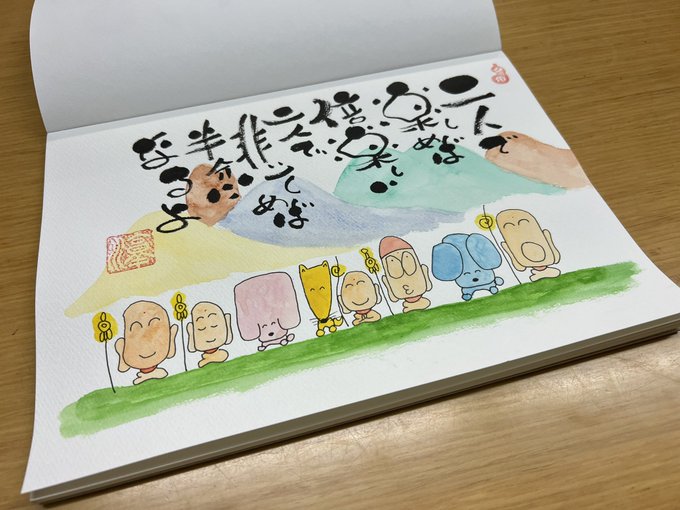 二人で
楽しめば
倍楽しい
二人で
悲しめば
半分に
なるよ